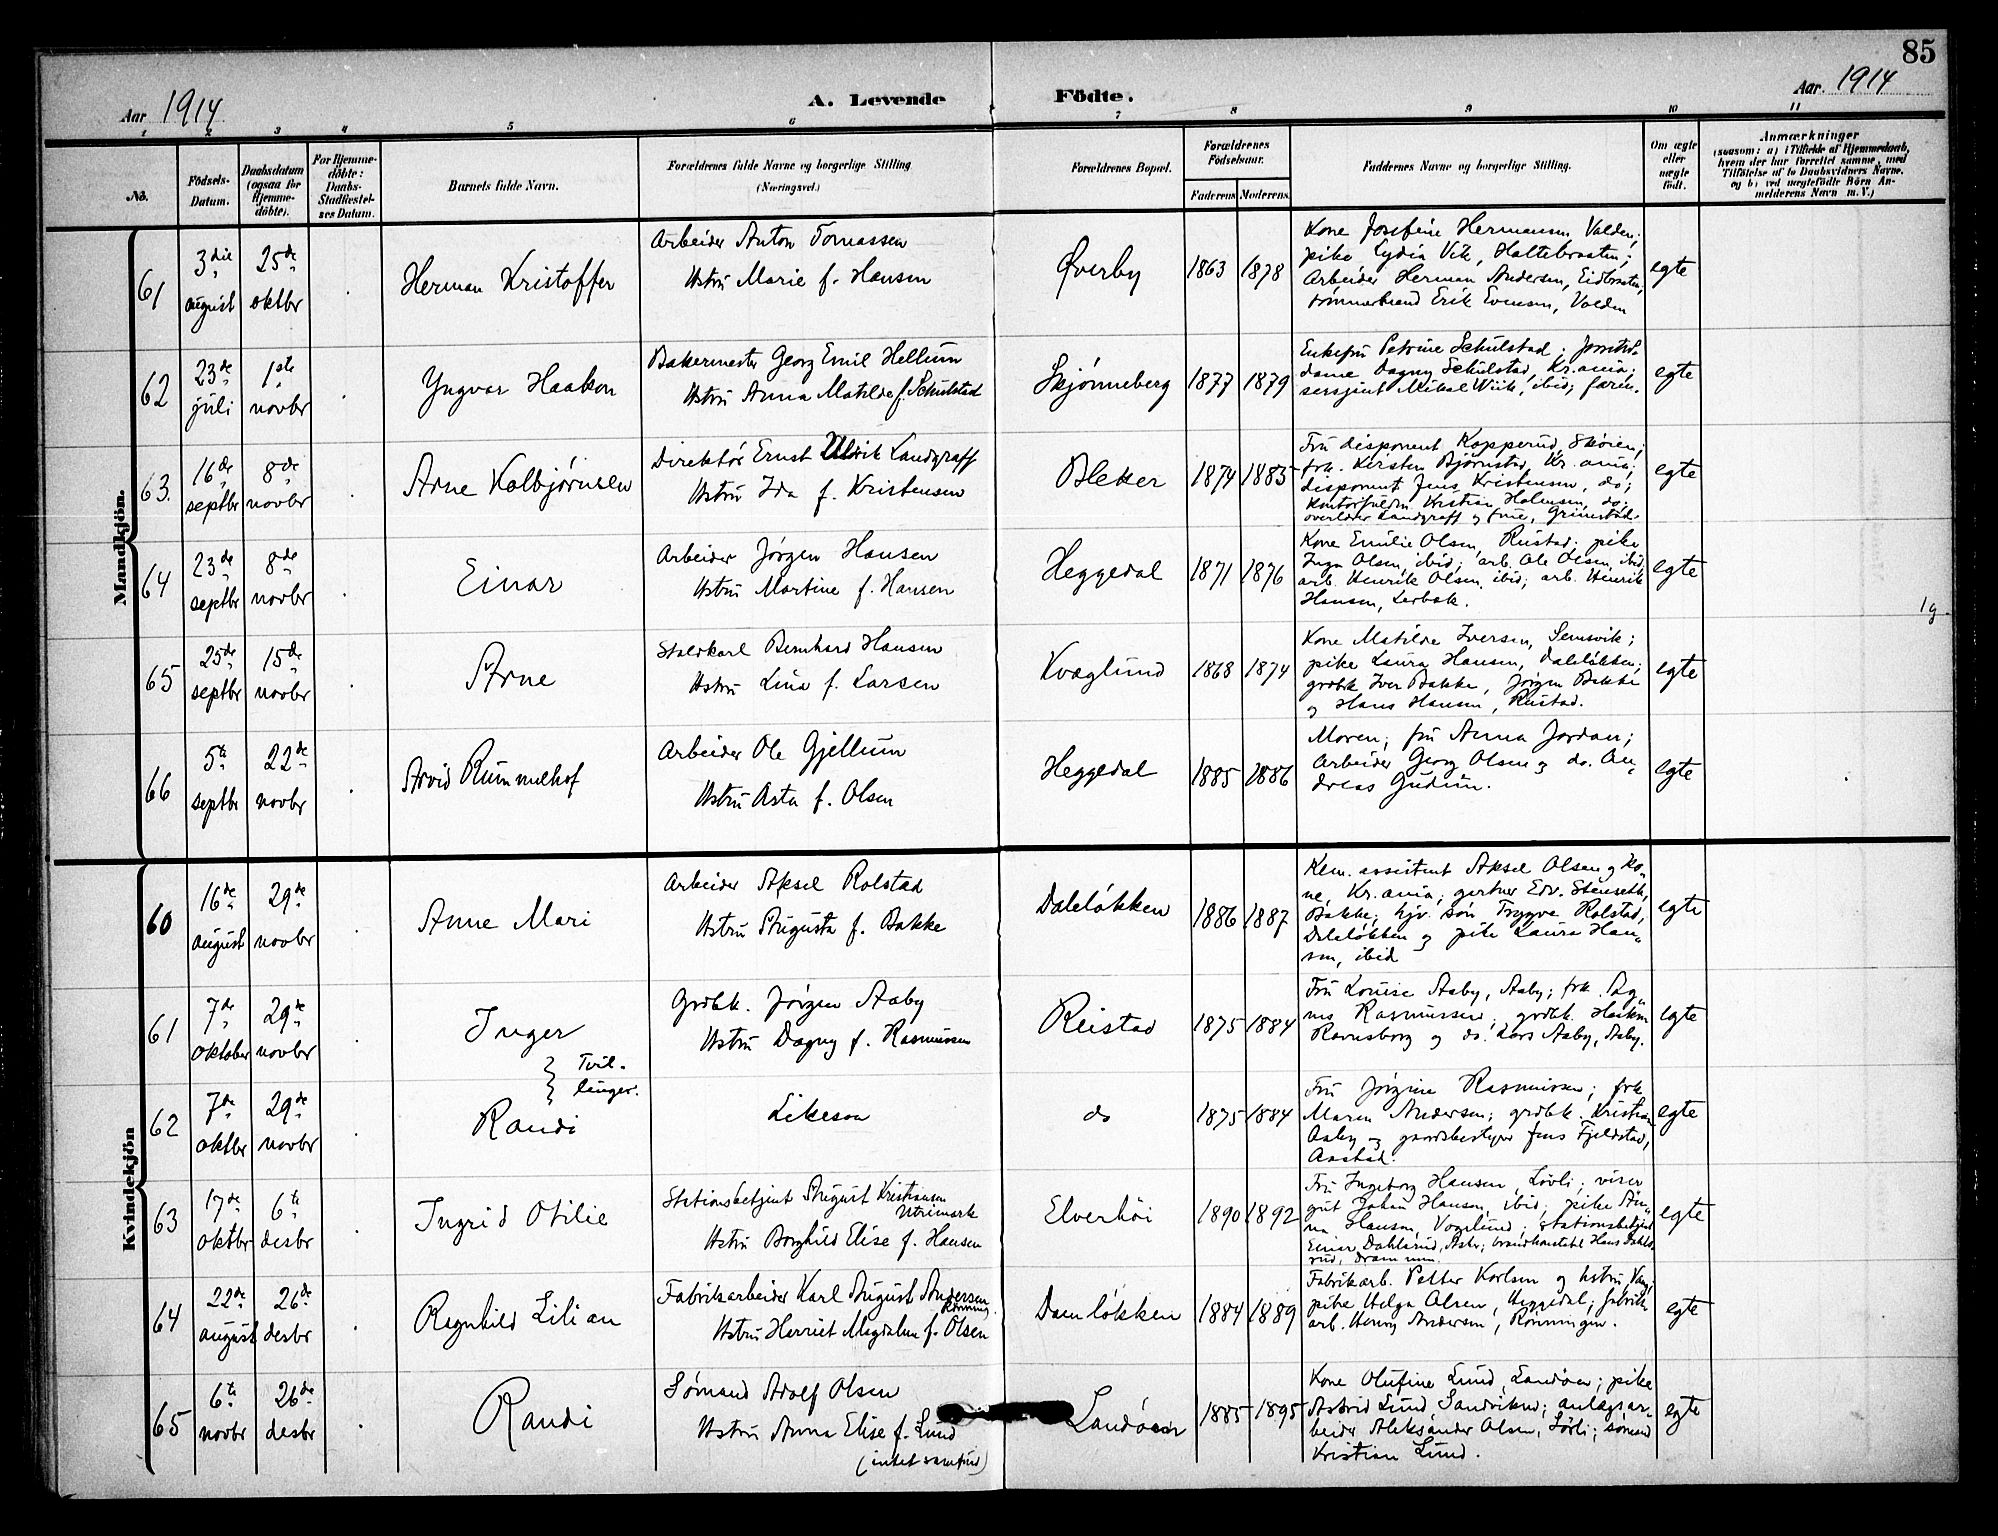 85
Aar 1914
A. Levende Födte.
Aar. 1914
1 2 3 4 5 6 7 8 9 10 11
No.
Födsels-
Datum.
Daabsdatum
(ogsaa for
Hjemme-
döbte).
For Hjemme-
döbte:
Daabs-
Stadfæstel-
ses Datum.
Barnets fulde Navn.
Forældrenes fulde Navne og borgerlige Stilling.
(Næringsvei.)
Forældrenes Bopæl.
Forældrenes
Födselsaar.
Faderens Moderens
Faddernes Navne og borgerlige Stilling.
Om ægte
eller
uægte
födt.
Anmærkninger
(saasom: a) i Tilfælde af Hjemmedaab,
hvem der har forrettet samme, med
Tilföielse af to Daabsvidners Navne.
og b) ved uægtefödte Börn An-
melderens Navn m. V.)
Mandkjön.
61
3die
august
25de
oktbr
Herman Kristoffer
Arbeider Anton Tomassen
Hstru Marie f. Hansen
Øverby
1863
1878
Kone Josefine Hermansen Valden;
pike Lydia Vik, Haltebraaten;
Arbeider Herman Andersen, Eidbraaten,
tømmerbrand Erik Evensen, Valden
egte
62
23de
juli
1ste
novbr
Yngvar Haakon
Bakermester Georg Emil Hellum
Hstru Anna Matilde f. Schulstad
Skjønneberg
1877
1879
Enkefru Petrine Schulstad;
dame Dagny Schulstad, Kr.ania;
sersjent Mikal Wiik, ibid; faren.
egte
63.
16de
septbr
8de
novbr
Arne Kolbjørnsen
Direktør Ernst Ulrik Landgraff
Hstru Ida f. Kristensen
Bleker
1874
1883
Fru disponent Kopperud, Skøien;
frk. Kirsten Bjørnstad, Kr.ania;
disponent Jens Kristensen, do;
Kristian Holmsen, do;
Landgraff og frue, Grimstad.
egte
64
23de
septbr
8de
novbr
Einar
Arbeider Jørgen Hansen
Hstru Martine f. Hansen
Heggedal
1871
1876
Kone Emilie Olsen, Rustad; pike
Inga Olsen, ibid; arb. Ole Olsen, ibid;
arb. Henrik Olsen, ibid; arb. Henrik
Hansen, Lerbæk.
egte
1g
65
25de
septbr
15de
novbr
Arne
Staldkarl Bernhard Hansen
Hstru Lina f. Larsen
Kvæglund
1868
1874
Kone Matilde Iversen, Semsvik;
pike Laura Hansen, Daleløkken;
grdbk Iver Bakke, Jørgen Bakke
og Hans Hansen, Rustad.
egte
66
5te
septbr
22de
novbr
Arvid Rummelhof
Arbeider Ole Gjellum
Hstru Asta f. Olsen
Heggedal
1885
1886
Moren; fru Anna Jordan;
Arbeider Georg Olsen og do. An-
dreas Gudim.
egte
Kvindekjön
60
16de
august
29de
novbr
Anne Mari
Arbeider Aksel Rolstad
Hstru Augusta f. Bakke
Daleløkken
1886
1887
Kem. assistent Aksel Olsen og ko-
ne, Kr.ania; gartner Edv. Stenseth,
Bakke; hjv. søn Trygve Rolstad,
Daleløkken og pike Laura Han-
sen, ibid
egte
61
7de
oktober
29de
novbr
Inger
Grdbk. Jørgen Aaby
Hstru Dagny f. Rasmussen
Reistad
1875
1884
Fru Louise Aaby, Aaby; frk. Ag-
nes Rasmussen; grdbk. Haakon
Ravnsborg og do. Lars Aaby, Aaby.
egte
Tvil-
linger.
62
7de
oktbr
29de
novbr
Randi
Likesaa
do
1875
1884
Fru Jørgine Rasmussen; frk
Maren Andersen; grdbk. Kristian
Aaby og gaardsbestyrer Jens Fjeldstad,
Aastad.
egte
63
17de
oktbr
6te
desbr
Ingrid Otilie
Stationsbetjent August Kristiansen
Utrimark
Hstru Borghild Elise f. Hansen
Elverhøi
1890
1892
Fru Ingeborg Hansen, Løvli; viser
gut Johan Hansen, ibid; pike An-
na Hansen, Voglund; stationsbetjent
Einar Dahlsrud, Asker; brandkonstabel Hans Dahls-
rud, Drammen.
egte
64
22de
august
26de
desbr
Ragnhild Lilian
Fabrikarbeider Karl August Andersen
Rønning.
Hstru Harriet Magdalena f. Olsen
Damløkken
1884
1889
Fabrikarb. Petter Karlsen og hstru,
pike Helga Olsen, Heggedal; fabrik-
arb. Henry Andersen, Rønningen.
egte
65
6te
novbr
26de
desbr
Randi
Sømand Adolf Olsen
Hstru Anna Elise f. Lund
(intet samfund)
Landøen
1885
1895
Kone Olufine Lund, Landøen; pike
Astrid Lund, Sandviken; anlægsar-
beider Aleksander Olsen, Lørli; sømand
Kristian Lund.
egte